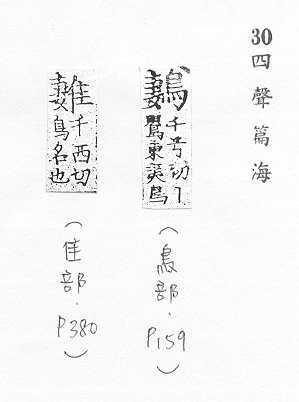 30 四聲篇海
鶈 千兮切丨
鸎東夷鳥
（鳥部．P159）
千西切
鳥名也
（隹部．P380）